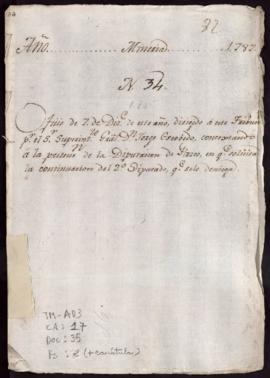 32
Año. Mineria 1787.
N. 34.
Oficio de 7. de Dize. de este año, dirigido á este Tribunal
pr. el Sr. Superintte. Gral. Dn. Jorge Escobedo, contextando
á la peticion de la Diputacion de Pasco, en qe. solicita
la continuacion del 2º Diputado, qe. se le deniega.
TM-AD3
CA: 17
DOC: 35
Fs: 2 (+ carátula)